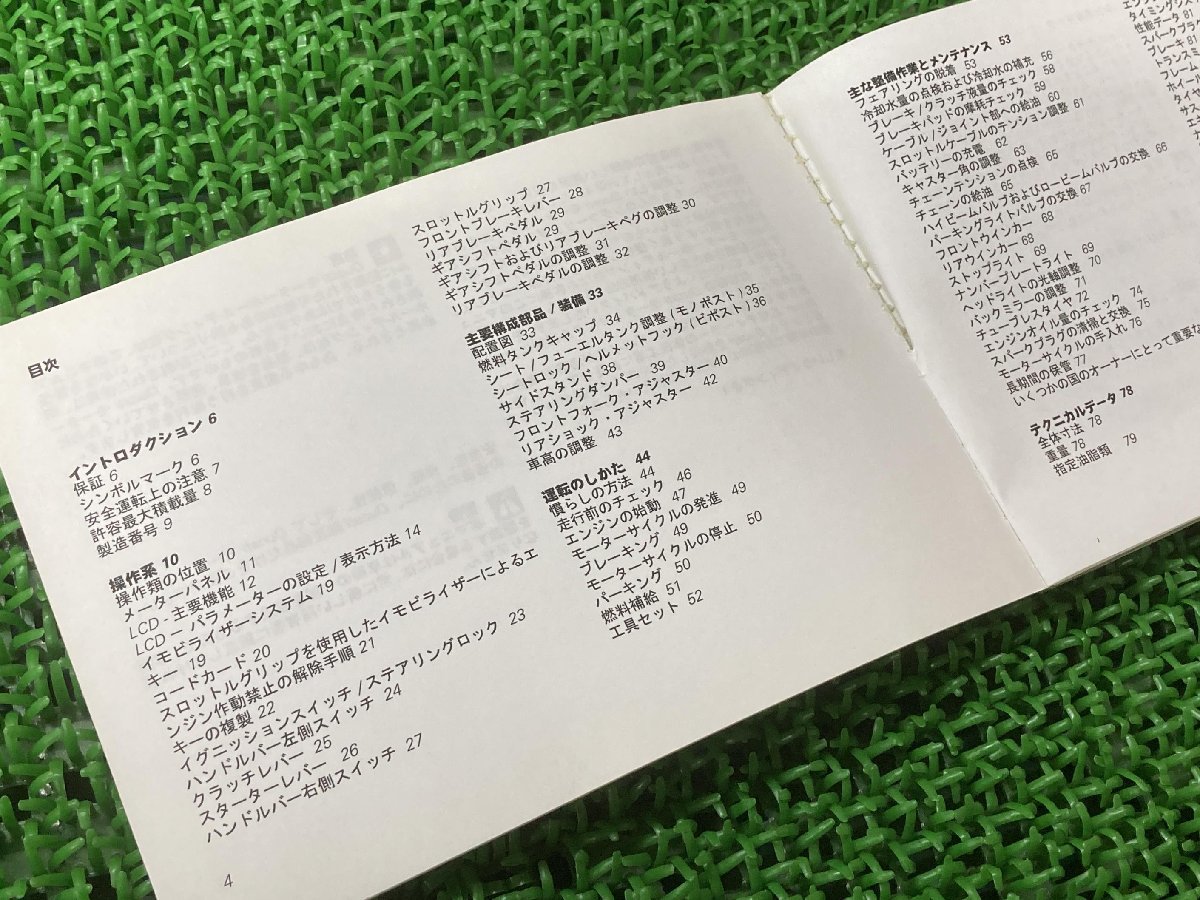 目次
イントロダクション 6
保証 6
シンボルマーク 6
安全運転上の注意 7
許容最大積載量 8
製造番号 9
操作系 10
操作類の位置 10
メーターパネル 11
LCD - 主要機能 12
LCD — パラメーターの設定 / 表示方法 14
イモビライザーシステム 19
キー 19
コードカード 20
スロットルグリップを使用したイモビライザーによるエ
ンジン作動禁止の解除手順 21
キーの複製 22
イグニッションスイッチ / ステアリングロック 23
ハンドルバー左側スイッチ 24
クラッチレバー 25
スターターレバー 26
ハンドルバー右側スイッチ 27
スロットルグリップ 27
フロントブレーキレバー 28
リアブレーキペダル 29
ギアシフトペダル 29
ギアシフトおよびリアブレーキペグの調整 30
ギアシフトペダルの調整 31
リアブレーキペダルの調整 32
主要構成部品 / 装備 33
配置図 33
燃料タンクキャップ 34
シート / フューエルタンク調整 (モノポスト) 35
シートロック / ヘルメットフック (ビポスト) 36
サイドスタンド 38
ステアリングダンパー 39
フロントフォーク・アジャスター 40
リアショック・アジャスター 42
車高の調整 43
運転のしかた 44
慣らしの方法 44
走行前のチェック 46
エンジンの始動 47
モーターサイクルの発進 49
ブレーキング 49
モーターサイクルの停止 50
パーキング 50
燃料補給 51
工具セット 52
4
主な整備作業とメンテナンス 53
フェアリングの脱着 53
冷却水量の点検および冷却水の補充 56
ブレーキ / クラッチ液量のチェック 58
ブレーキパッドの摩耗チェック 59
ケーブル / ジョイント部への給油 60
スロットルケーブルのテンション調整 61
バッテリーの充電 62
キャスター角の調整 63
チェーンテンションの点検 65
チェーンの給油 65
ハイビームバルブおよびロービームバルブの交換 66
パーキングライトバルブの交換 67
フロントウインカー 68
リアウインカー 68
ストップライト 69
ナンバープレートライト 69
ヘッドライトの光軸調整 70
バックミラーの調整 71
チューブレスタイヤ 72
エンジンオイル量のチェック 74
スパークプラグの清掃と交換 75
モーターサイクルの手入れ 76
長期間の保管 77
いくつかの国のオーナーにとって重要な
テクニカルデータ 78
全体寸法 78
重量 78
指定油脂類 79
タイミングシス
性能データ 81
スパークプラグ
ブレーキ 81
トランスミ
フレーム
ホイー
タイヤ